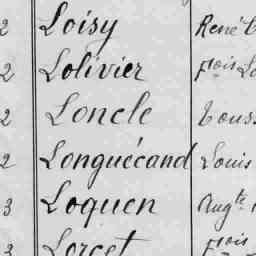 2 Loisy René
2 Lolivier fçois
2 Loncle
2 Longuécand Louis
3 Loquen Augte
3 Lorcet fçois